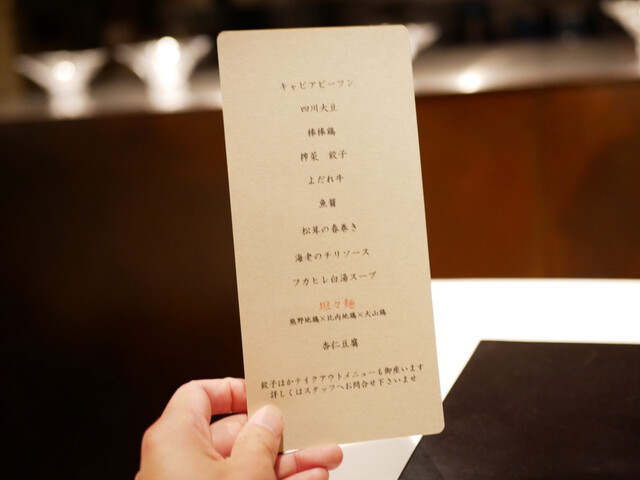 キャビアビーフン
四川大豆
棒棒鶏
搾菜　餃子
よだれ牛
魚醤
松茸の春巻き
海老のチリソース
フカヒレ白湯スープ
担々麺
熊野地鶏×比内地鶏×大山鶏
杏仁豆腐
餃子ほかテイクアウトメニューも御座います
詳しくはスタッフへお問合せ下さいませ